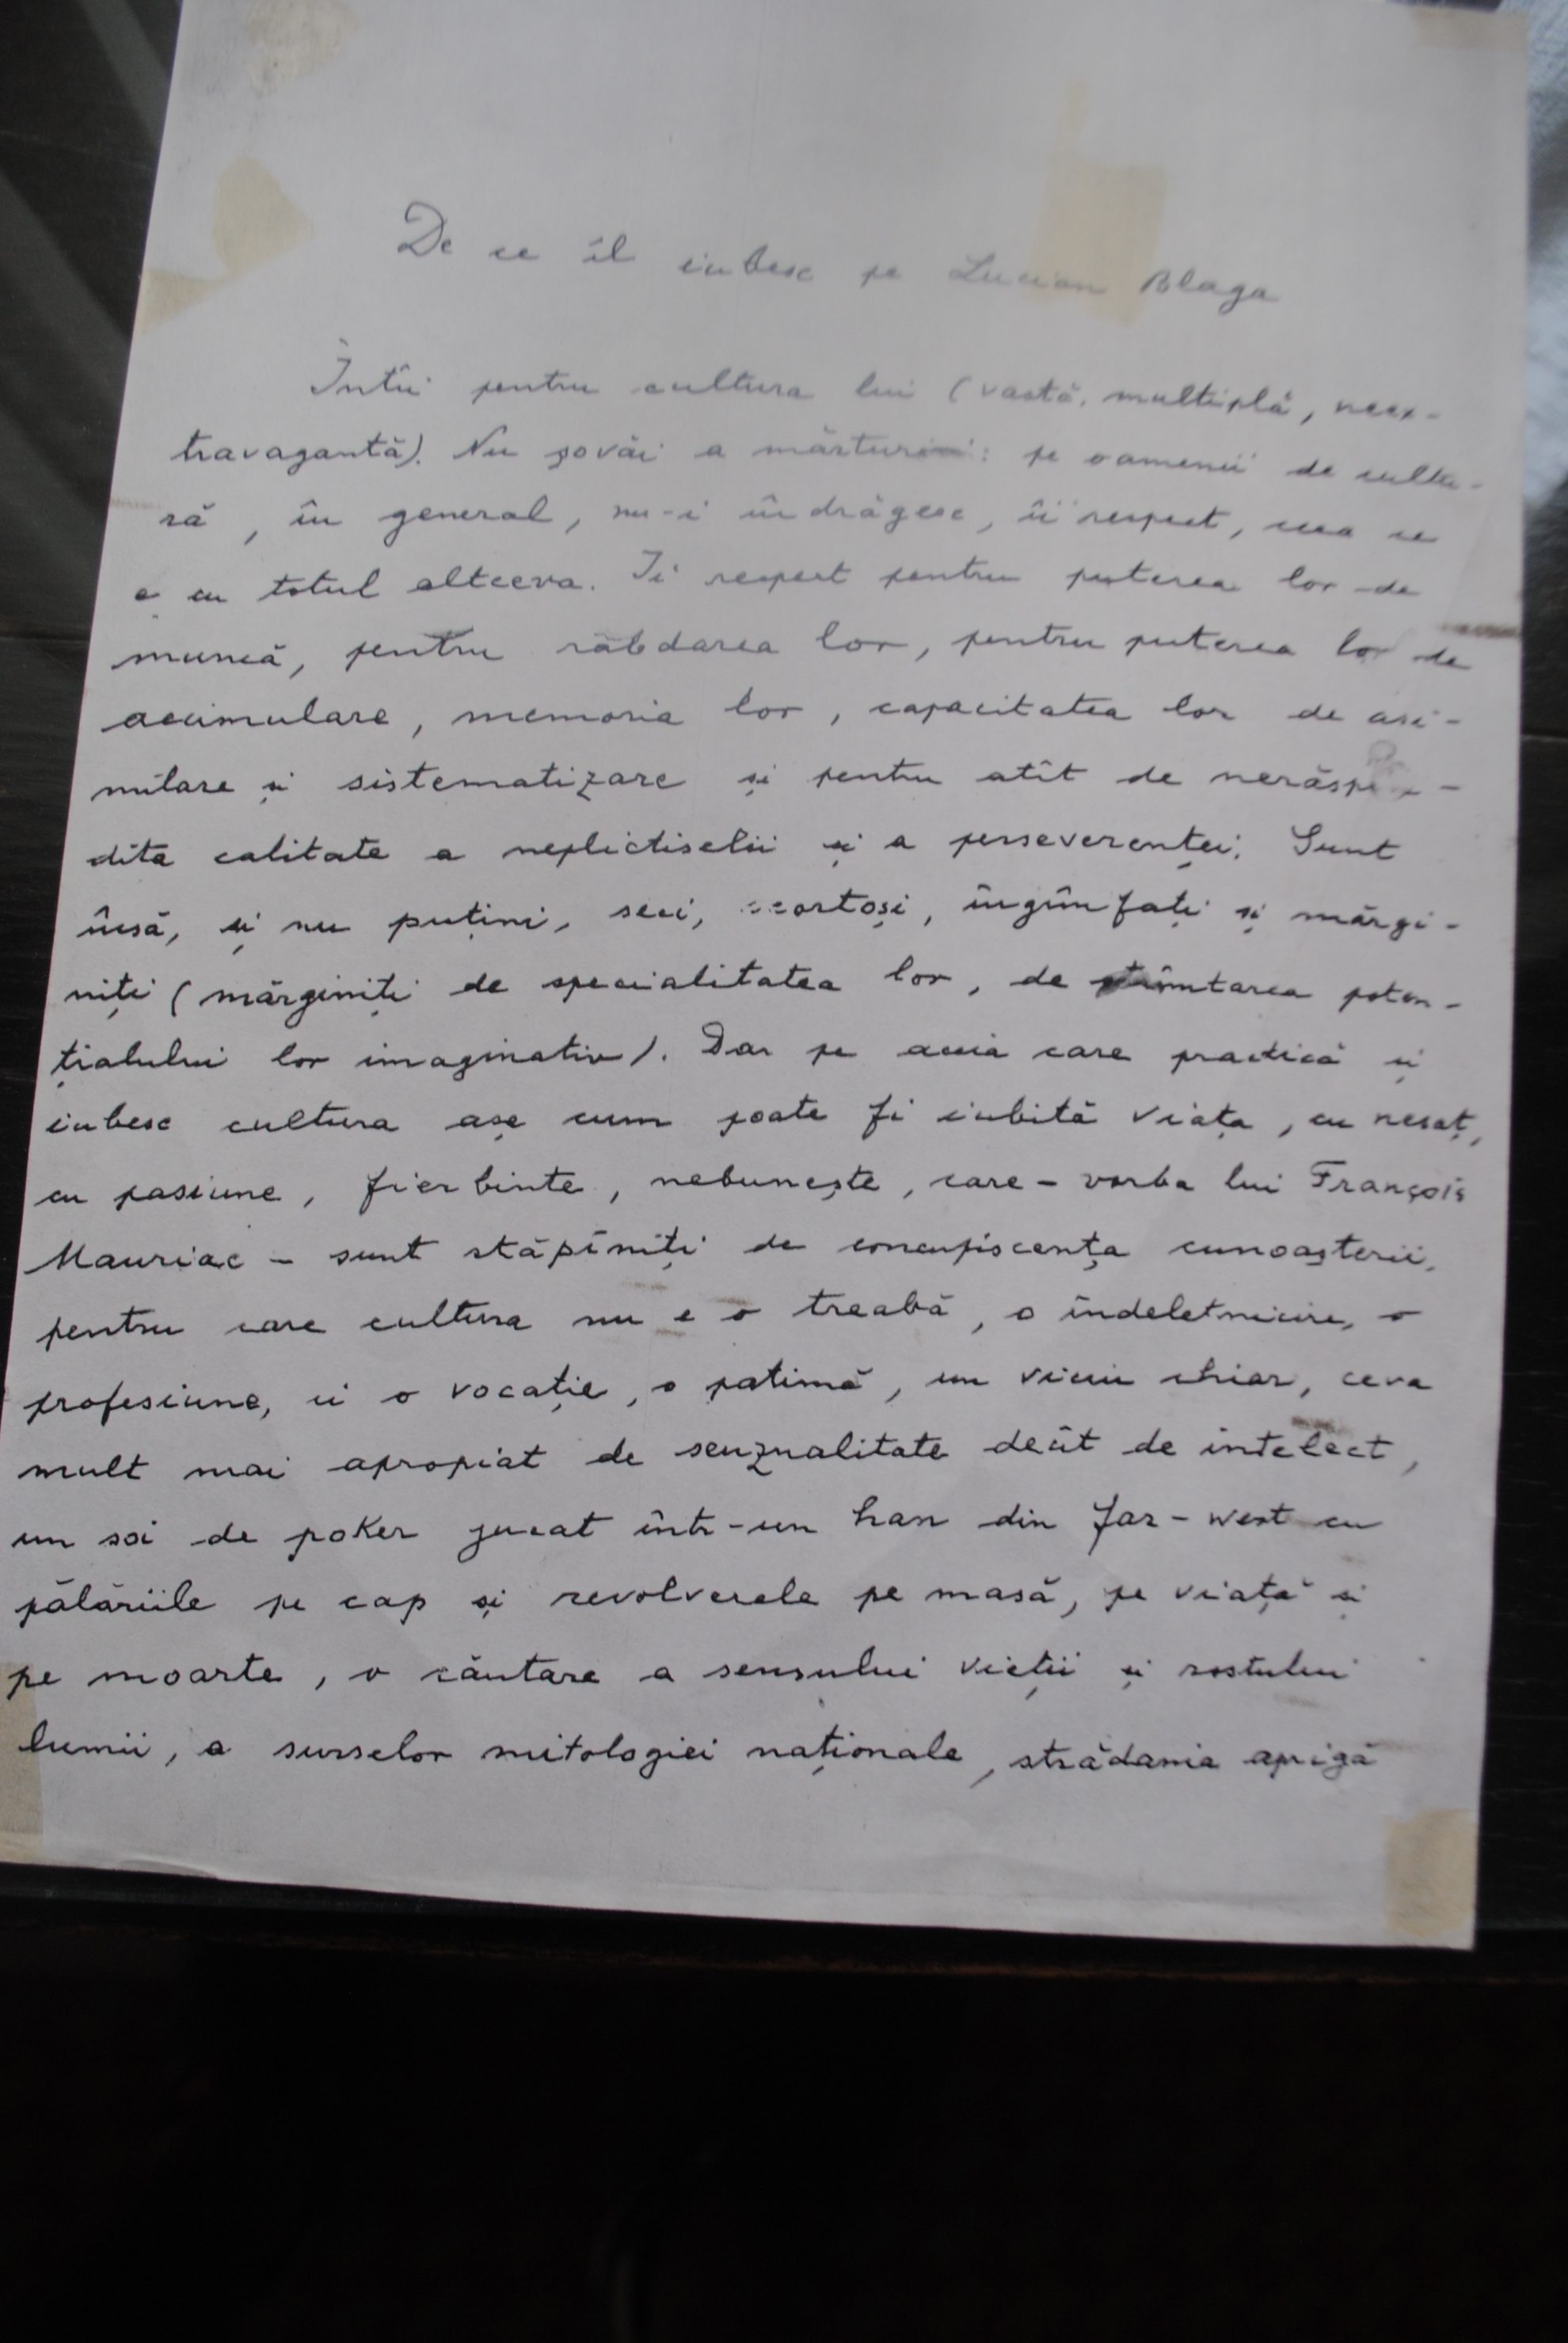 De ce îl iubesc pe Lucian Blaga
Întîi pentru cultura lui (vastă, multiplă, neex-
travagantă). Nu șovăi a mărturisi: pe oamenii de cultu-
ră, în general, nu-i îndrăgesc, îi respect, ceea ce
e cu totul altceva. Îi respect pentru puterea lor de
muncă, pentru răbdarea lor, pentru puterea lor de
acumulare, memoria lor, capacitatea lor de asi-
milare și sistematizare și pentru atît de
calitate a neplictiselii și a perseverenței. Sunt
însă, și nu puțini, seci, scorțoși, îngîmfați și mărgi-
niți (mărginiți de specialitatea lor, de poten-
țialului lor imaginativ). Dar pe aceia care practică și
iubesc cultura așa cum poate fi iubită viața, cu nesaț,
cu pasiune, fierbinte, nebunește, care – vorba lui François
Mauriac – sunt stăpîniți de concupiscența cunoașterii,
pentru care cultura nu e o treabă, o îndeletnicire, o
profesiune, ci o vocație, o patimă, un viciu chiar, ceva
mult mai apropiat de senzualitate decît de intelect,
un soi de poker jucat într-un han din far-west cu
pălăriile pe cap și revolverele pe masă, pe viață și
pe moarte, o căutare a sensului vieții și rostului
lumii, a surselor mitologiei naționale, strădania aprigă